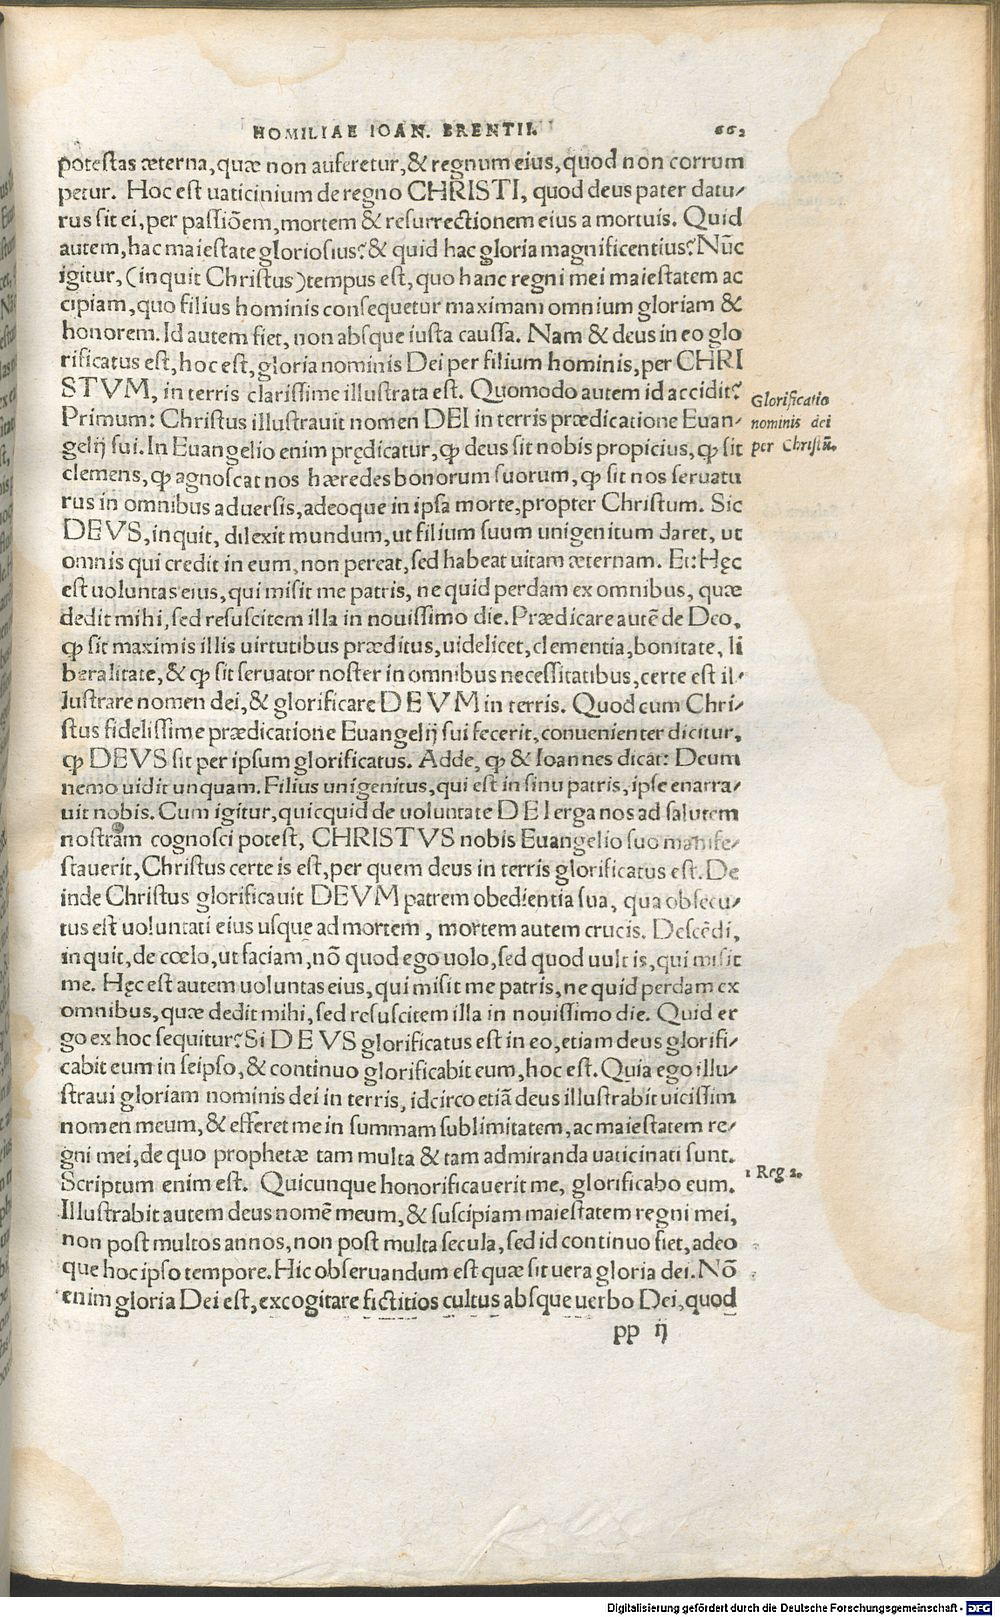 HOMILIAE IOAN. BRENTII. 662
potestas æterna, quæ non auferetur, & regnum eius, quod non corrum
petur. Hoc est uaticinium de regno CHRISTI, quod deus pater datu-
rus sit ei, per passiõem, mortem & resurrectionem eius a mortuis. Quid
autem, hac maiestate gloriosius? & quid hac gloria magnificentius? Nũc
igitur, (inquit Christus) tempus est, quo hanc regni mei maiestatem ac
cipiam, quo filius hominis consequetur maximam omnium gloriam &
honorem. Id autem fiet, non absque iusta caussa. Nam & deus in eo glo
rificatus est, hoc est, gloria nominis Dei per filium hominis, per CHRI
STVM, in terris clarissime illustrata est. Quomodo autem id accidit?
Glorificatio
nominis dei
per Christũ.
Primum: Christus illustrauit nomen DEI in terris prædicatione Euan-
gelij sui. In Euangelio enim prędicatur, ꝙ deus sit nobis propicius, ꝙ sit
clemens, ꝙ agnoscat nos hæredes bonorum suorum, ꝙ sit nos seruatu
rus in omnibus aduersis, adeoque in ipsa morte, propter Christum. Sic
DEVS, inquit, dilexit mundum, ut filium suum unigenitum daret, ut
omnis qui credit in eum, non pereat, sed habeat uitam æternam. Et: Hęc
est uoluntas eius, qui misit me patris, ne quid perdam ex omnibus, quæ
dedit mihi, sed resuscitem illa in nouissimo die. Prædicare autẽ de Deo,
ꝙ sit maximis illis uirtutibus præditus, uidelicet, clementia, bonitate, li
beralitate, & ꝙ sit seruator noster in omnibus necessitatibus, certe est il-
lustrare nomen dei, & glorificare DEVM in terris. Quod cum Chri-
stus fidelissime prædicatione Euangelij sui fecerit, conuenienter dicitur,
ꝙ DEVS sit per ipsum glorificatus. Adde, ꝙ & Ioannes dicat: Deum
nemo uidit unquam. Filius unigenitus, qui est in sinu patris, ipse enarra-
uit nobis. Cum igitur, quicquid de uoluntate DEI erga nos ad salutem
nostram cognosci potest, CHRISTVS nobis Euangelio suo manife-
stauerit, Christus certe is est, per quem deus in terris glorificatus est. De
inde Christus glorificauit DEVM patrem obedientia sua, qua obsecu-
tus est uoluntati eius usque ad mortem, mortem autem crucis. Descẽdi,
inquit, de cœlo, ut faciam, nõ quod ego uolo, sed quod uult is, qui misit
me. Hęc est autem uoluntas eius, qui misit me patris, ne quid perdam ex
omnibus, quæ dedit mihi, sed resuscitem illa in nouissimo die. Quid er
go ex hoc sequitur? Si DEVS glorificatus est in eo, etiam deus glorifi-
cabit eum in seipso, & continuo glorificabit eum, hoc est. Quia ego illu-
straui gloriam nominis dei in terris, idcirco etiã deus illustrabit uicissim
nomen meum, & efferet me in summam sublimitatem, ac maiestatem re-
gni mei, de quo prophetæ tam multa & tam admiranda uaticinati sunt.
1 Reg 2.
Scriptum enim est. Quicunque honorificauerit me, glorificabo eum.
Illustrabit autem deus nomẽ meum, & suscipiam maiestatem regni mei,
non post multos annos, non post multa secula, sed id continuo fiet, adeo
que hoc ipso tempore. Hic obseruandum est quæ sit uera gloria dei. Nõ
enim gloria Dei est, excogitare fictitios cultus absque uerbo Dei, quod
pp ij
Digitalisierung gefördert durch die Deutsche Forschungsgemeinschaft - DFG